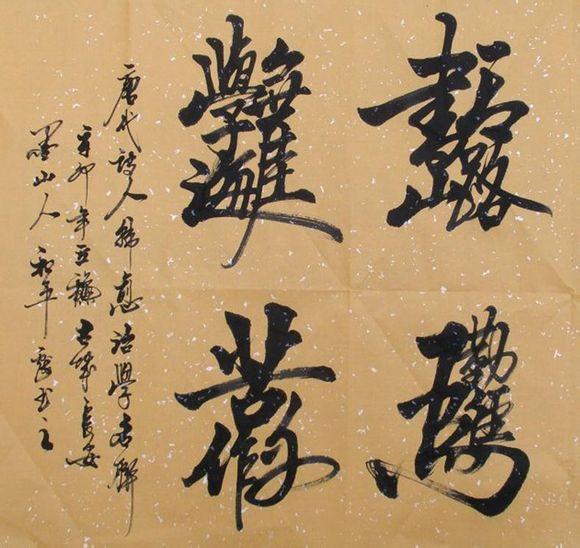 書山有路
勤為徑
學海無涯
苦作舟
唐代詩人韓愈治學名聯
辛卯年穐古城長安
墨山人和平書之